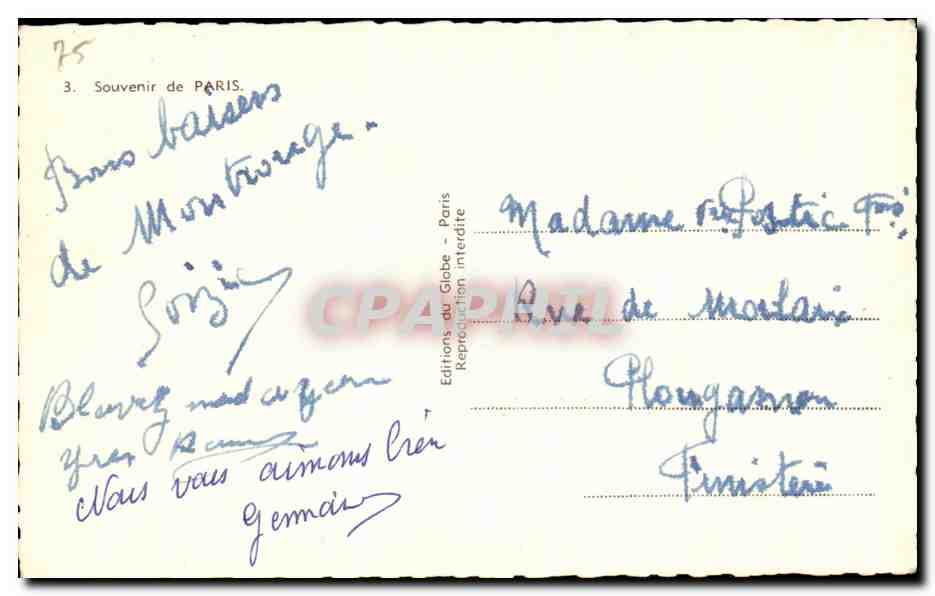 75
3. Souvenir de PARIS.
Bons baisers
de Montrouge.
Nous vous aimons bien
Germain
Editions du Globe - Paris
Reproduction interdite
CPAPHIL
Madame Postic
Rue de Morlaix
Plougasnou
Finistère